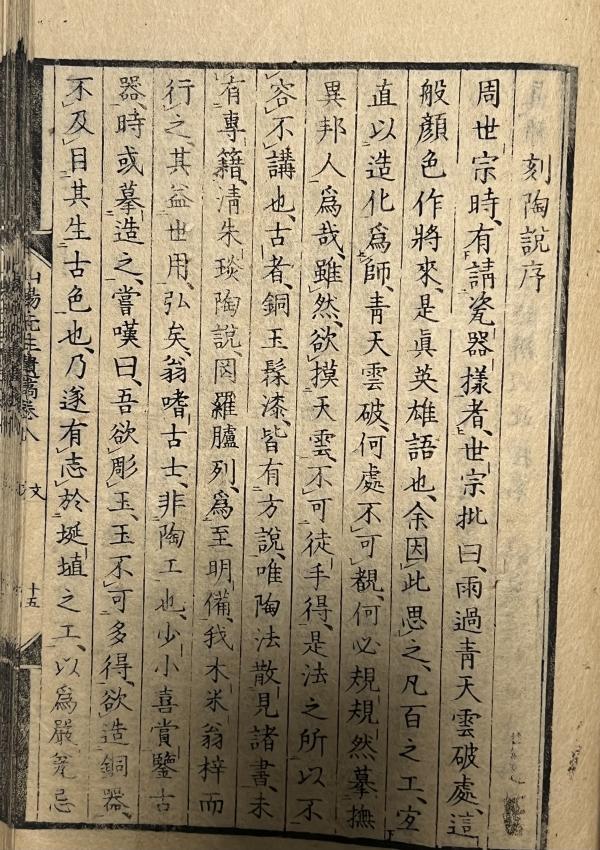 刻陶說序
周世宗時、有請瓷器樣者、世宗批曰、雨過青天雲破處、這
般顏色作將來、是眞英雄語也、余因此思之、凡百之工、宜
直以造化爲師、青天雲破、何處不可覩、何必規規然摹撫
異邦人爲哉、雖然、欲摸天雲、不可徒手得、是法之所以不
容不講也、古者、銅玉髹漆、皆有方說、唯陶法散見諸書、未
有專籍、淸朱琰陶說、罔羅臚列、爲至明備、我木米翁梓而
行之、其益世用、弘矣、翁嗜古士、非陶工也、少小喜賞鑒古
器、時或摹造之、嘗嘆曰、吾欲彫玉、玉不可多得、欲造銅器、
不及目其生古色也、乃遂有志於埏埴之工、以爲嚴兗忌
山陽先生遺稿卷八
文
十五